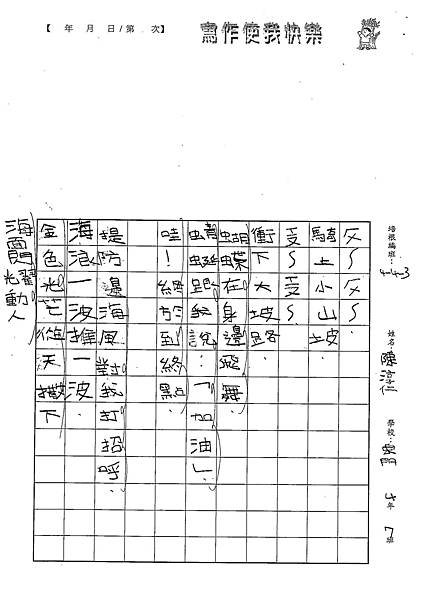 【 年 月 日/第 次】
寫作使我快樂
培根編班：443
姓名：陳淳仁
學校：東門
4年7班
ㄆ～ㄆ～
騎上小山坡
ㄆ～ㄆ～
衝下大坡路
蝴蝶在身邊飛舞
蜻蜓跟我說：「加油」
哇！終於到終點
堤防邊海風對我打招呼
海浪一波推一波
金色光芒從天撒下
海面閃耀光動人